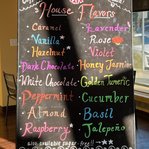 House Flavors
Caramel
Vanilla
Hazelnut
Dark Chocolate
White Chocolate
Peppermint
Almond
Raspberry
Lavender
Rose
Violet
Honey Jasmine
Golden Turmeric
Cucumber
Basil
Jalapeño
also available sugar-free!!